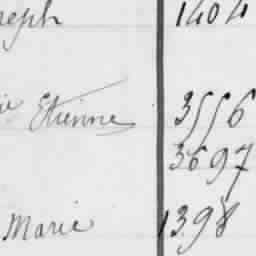 seph 1404
ie Etienne 3556
3697
Marie 1398